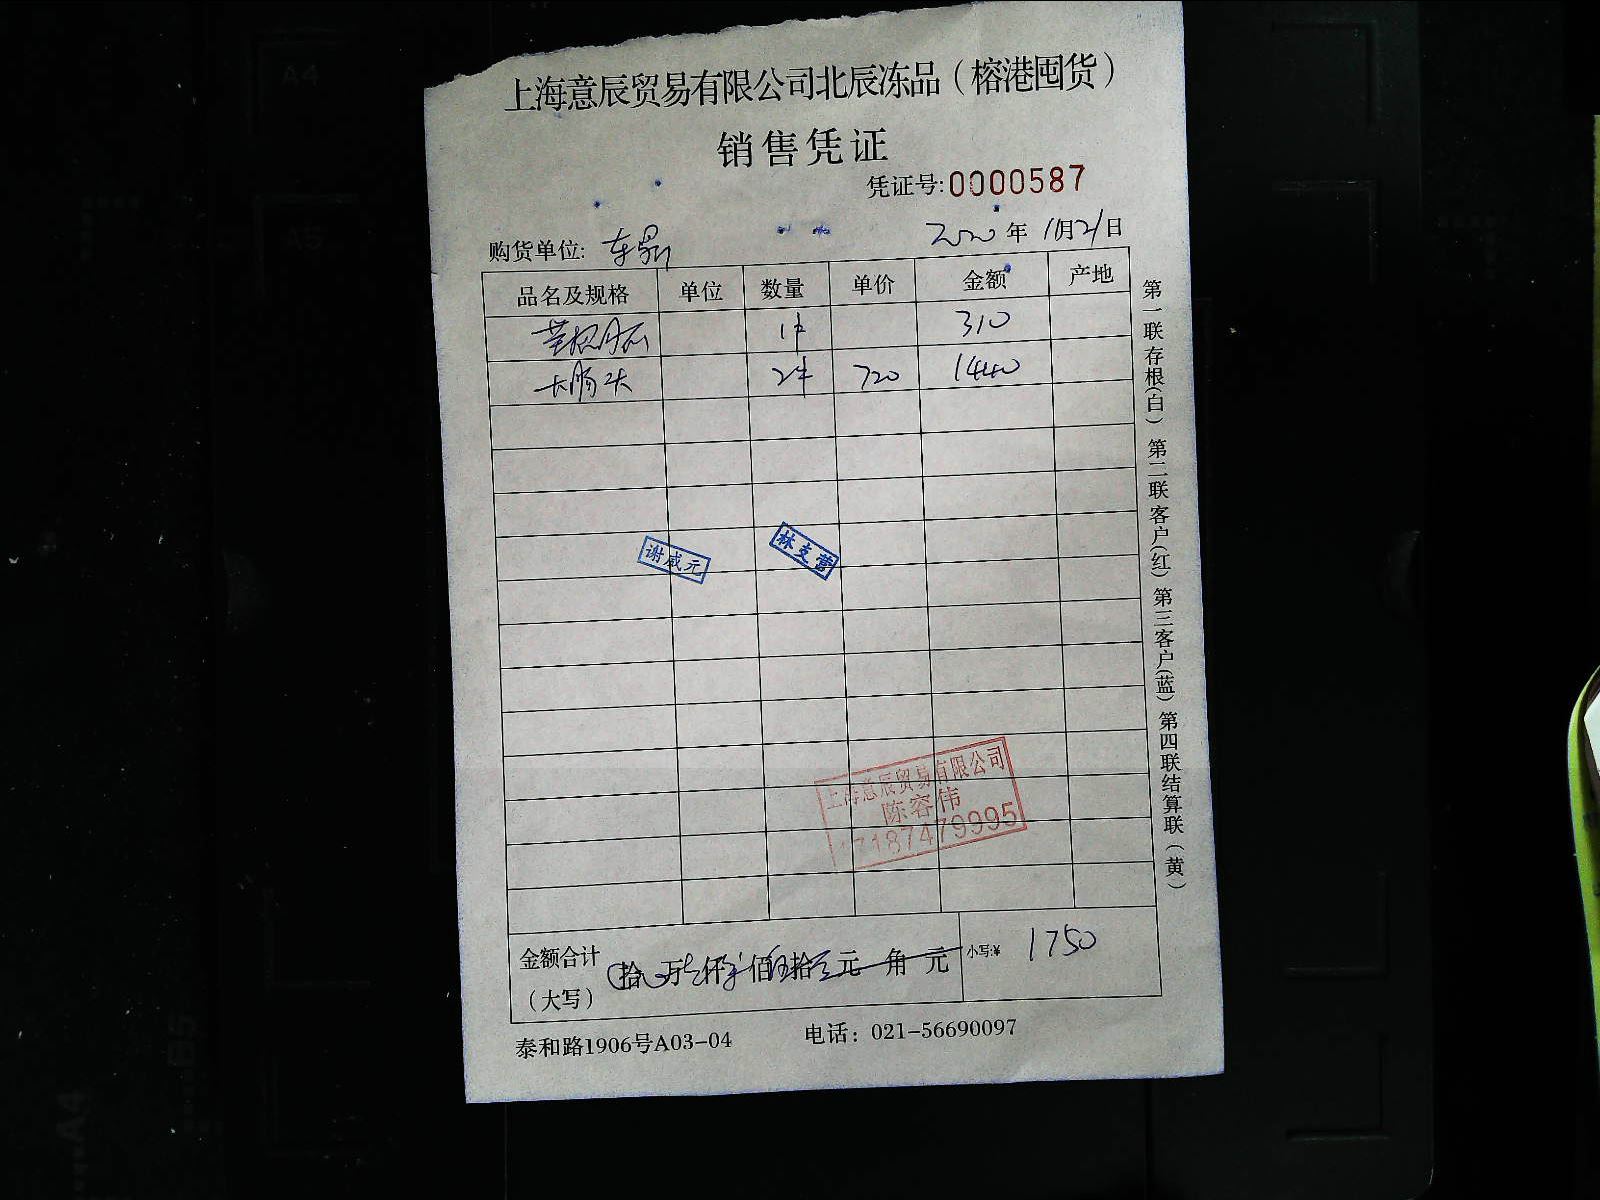 上海意辰贸易有限公司北辰冻品（榕港囤货）
销售凭证
凭证号:0000587
购货单位: 2020年11月21日
品名及规格 单位 数量 单价 金额 产地
1件 310
大肠头 2件 720 1440
谢威元
林支营
上海意辰贸易有限公司
陈容伟
17187479995
金额合计（大写） 拾 万 仟 佰 拾 元 角 元 小写:¥ 1750
泰和路1906号A03-04 电话：021-56690097
第一联存根(白) 第二联客户(红) 第三客户(蓝) 第四联结算联（黄）
A4
A5